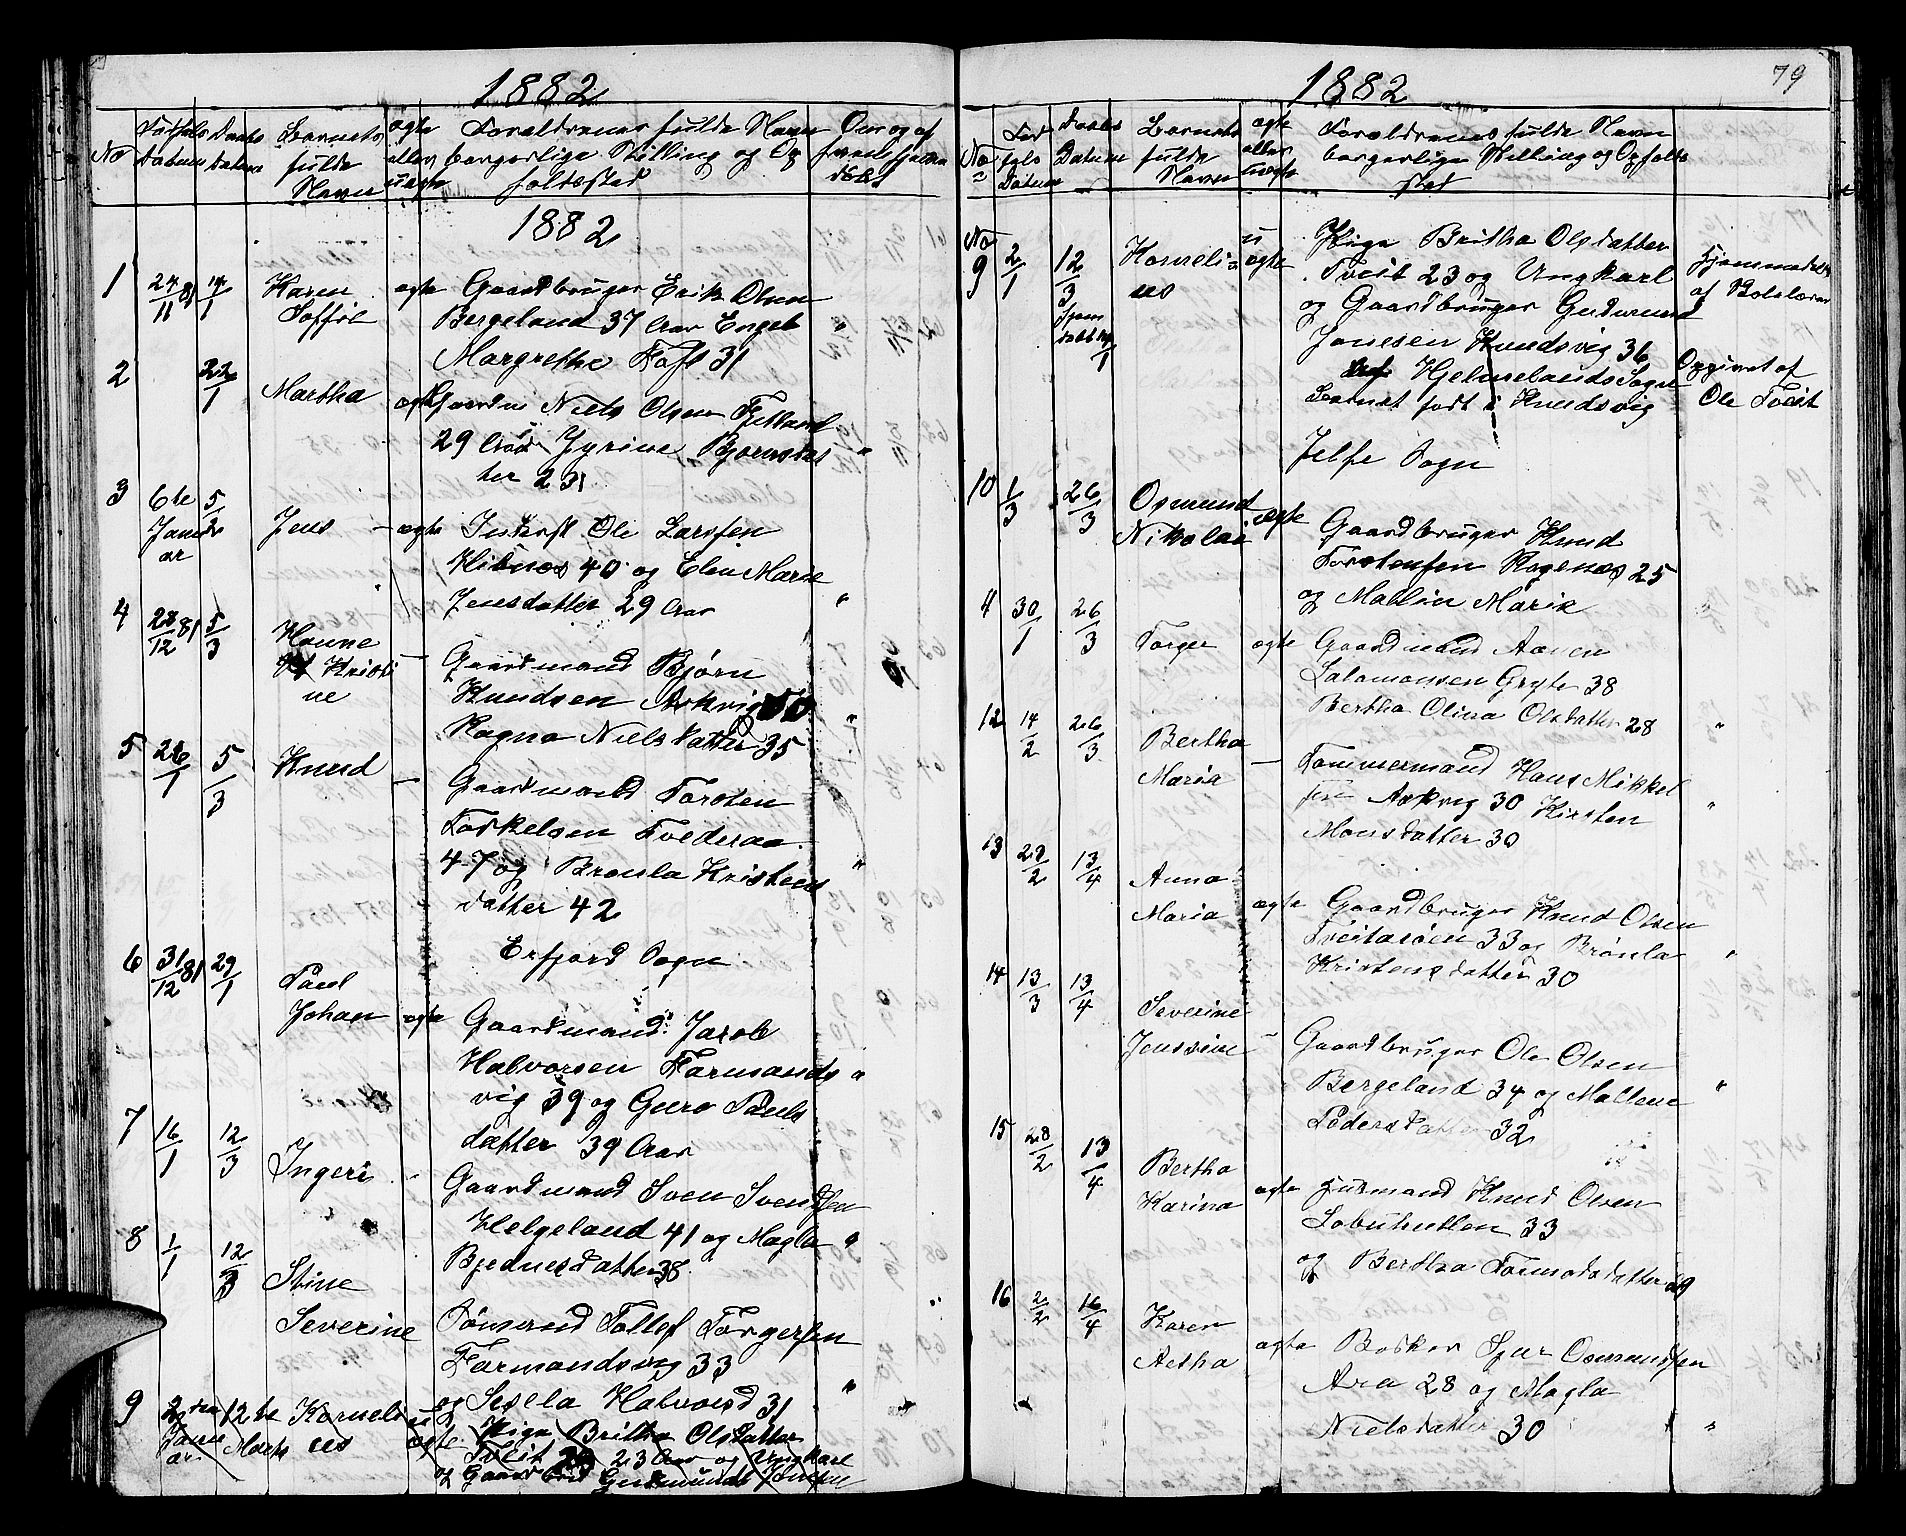 1882
No
Fødsels Datum
Daabs Datum
Barnets fulde Navn
ægte eller uægte
Forældrenes fulde Navn borgerlige Stilling og Opholdssted
Om og af hvem hjemmedøbt
1882
1 24/11 81 14/1 Karen ægte Gaardbruger Erik Olsen
Soffie Bergeland 37 Aar Engel "
Margrethe Toft 31
2 22/1 Martha ægte Gaardm Niels Olsen Fjelland
29 Aar Jyrine Bjørnsdat "
ter 23
3 6te Januar 5/2 Jens – ægte Inderst Ole Larssen
Hibnes 40 og Elen Marie
Jensdatter 29 Aar "
4 28/12 81 5/3 Hanne
Kristi – Gaardmand Bjørn
ne Knudsen Askvig 50 "
Ragna Nielsdatter 35
5 26/1 5/3 Knud – Gaardmand Torsten
Torkelsen Tvederaa
47 og Bronla Kristens "
datter 42
Erfjord Sogn
6 31/12 81 29/1 Paul
Johan ægte Gaardmand Jacob
Halvorsen Tarmands "
vig 39 og Guro Pauls
datter 39 Aar
7 16/1 12/3 Ingeri – Gaardmand Sven Svendsen
Helgeland 41 og Magla "
Bjednesdatter 38
8 1/1 12/3 Stine
Severine Sømand Tollef Torgersen
Tarmandsvig 33
og Sesela Halvorsd 31 "
9 2den Januar 12te Marts Kornelius uægte Pige Britha Olsdatter
Tveit 23 Aar og Ungkarl
og Gaardbrd Gudmund Jonesen
1882
79
No
Fødsels Datum
Daabs Datum
Barnets fulde Navn
ægte eller uægte
Forældrenes fulde Navn
borgerlige Stilling og Opholds
sted
No 9 2/1 12/3 Korneli u Pige Britha Olsdatter Hjemmedøbt
us ægte Tveit 23 og Ungkarl af Balslærer
og Gaardbruger Gudmund
Jonesen Knudsvig 36 Opgivet af
Hjelmelands Sogn Ole Tveit
Barnet født i Knudsvig
Jelse Sogn
10 1/3 26/3 Osmund
Nikolai ægte Gaardbruger Knud
Torstensen Ragenæs 25
og Mallin Marie
4 30/1 26/3 Torger ægte Gaardmand Aanen
Salamonsen Gryte 38
Bertha Olina Olsdatter 28 "
12 14/2 26/3 Bertha
Maria – Tommermand Hans Mikkel
sen Askvig 30 Kirsten "
Monsdatter 30
13 28/2 13/4 Anna
Maria ægte Gaardbruger Knud Olsen
Tveitarøen 33 og Brønla "
Kristensdatter 30
14 13/3 13/4 Severine
Jenssine – Gaardbruger Ole Olsen
Bergeland 34 og Mallene "
Pedersdatter 32
15 28/2 13/4 Bertha
Karina ægte Husmand Knud Olsen
33
og Bertha Tormodsdatter 29
16 2/2 16/4 Karen
Aetha ægte Bøsker Sjur Osmundsen
Ara 28 og Magla
Nielsdatter 30 "